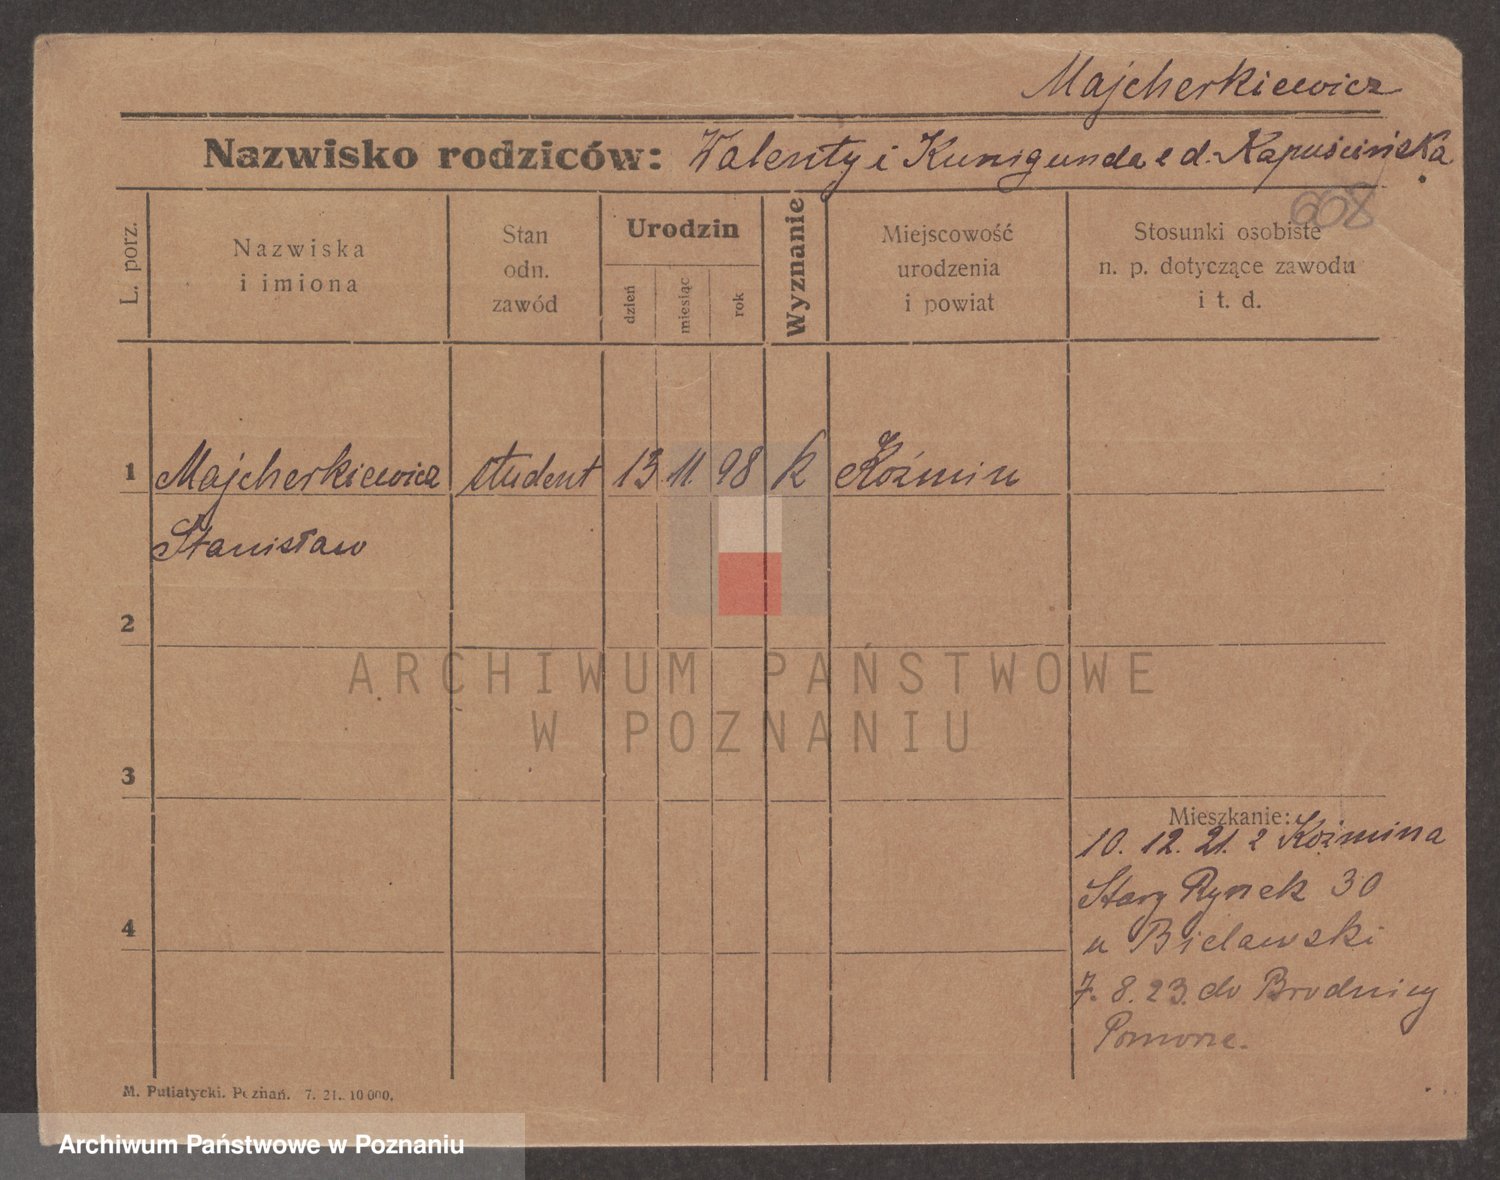 Majcherkiewicz
Nazwisko rodziców: Walenty i Kunigunda z d. Kapuścińska
608
L. porz.
Nazwiska
i imiona
Stan
odn.
zawód
Urodzin
dzień
miesiąc
rok
Wyznanie
Miejscowość
urodzenia
i powiat
Stosunki osobiste
n. p. dotyczące zawodu
i t. d.
1 Majcherkiewicz student 13 11. 98 k Koźmin
Stanisław
2
3
4
Mieszkanie:
10. 12. 21. z Koźmina
Stary Rynek 30
u Bielawski
7. 8. 23. do Brodnicy
Pomorze.
M. Putiatycki. Poznań. 7. 21. 10 000.
ARCHIWUM PAŃSTWOWE
W POZNANIU
Archiwum Państwowe w Poznaniu